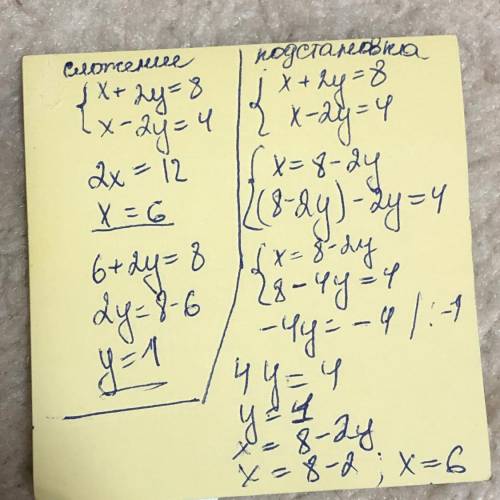 сложение
{ x + 2y = 8
x - 2y = 4
2x = 12
x = 6
6 + 2y = 8
2y = 8 - 6
y = 1
подстановка
{ x + 2y = 8
x - 2y = 4
{ x = 8 - 2y
(8 - 2y) - 2y = 4
{ x = 8 - 2y
8 - 4y = 4
-4y = -4 / : -1
4y = 4
y = 1
x = 8 - 2y
x = 8 - 2 ; x = 6